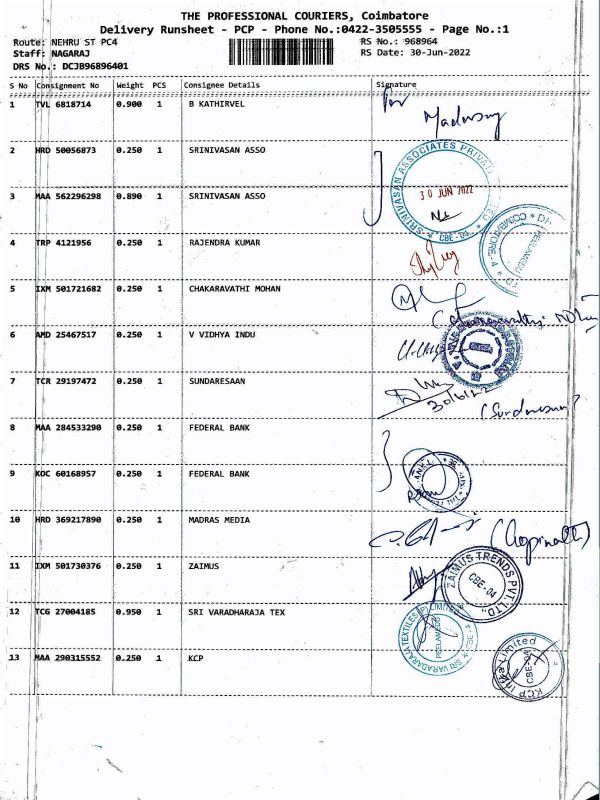 THE PROFESSIONAL COURIERS, Coimbatore
Delivery Runsheet - PCP - Phone No.:0422-3505555 - Page No.:1
Route: NEHRU ST PC4 RS No.: 968964
Staff: NAGARAJ RS Date: 30-Jun-2022
DRS No.: DCJB96896401
S No Consignment No Weight PCS Consignee Details Signature
1 TVL 6818714 0.900 1 B KATHIRVEL
2 HRD 50056873 0.250 1 SRINIVASAN ASSO
SRINIVASAN ASSOCIATES PRIVATE
30 JUN 2022
CBE - 04.
3 MAA 562296298 0.890 1 SRINIVASAN ASSO
4 TRP 4121956 0.250 1 RAJENDRA KUMAR
5 IXM 501721682 0.250 1 CHAKARAVATHI MOHAN
6 AMD 25467517 0.250 1 V VIDHYA INDU
7 TCR 29197472 0.250 1 SUNDARESAAN
30/6/22
8 MAA 284533290 0.250 1 FEDERAL BANK
9 KOC 60168957 0.250 1 FEDERAL BANK
10 HRD 369217890 0.250 1 MADRAS MEDIA
(Gopinath)
11 IXM 501730376 0.250 1 ZAIMUS
ZAIMUS TRENDS PVT. LTD
CBE-04
12 TCG 27004185 0.950 1 SRI VARADHARAJA TEX
SRI VARADARAJA TEXTILES (P) LIMITED
PEELAMEDU
CBE-4
13 MAA 290315552 0.250 1 KCP
KCP Infra Limited
CBE-04